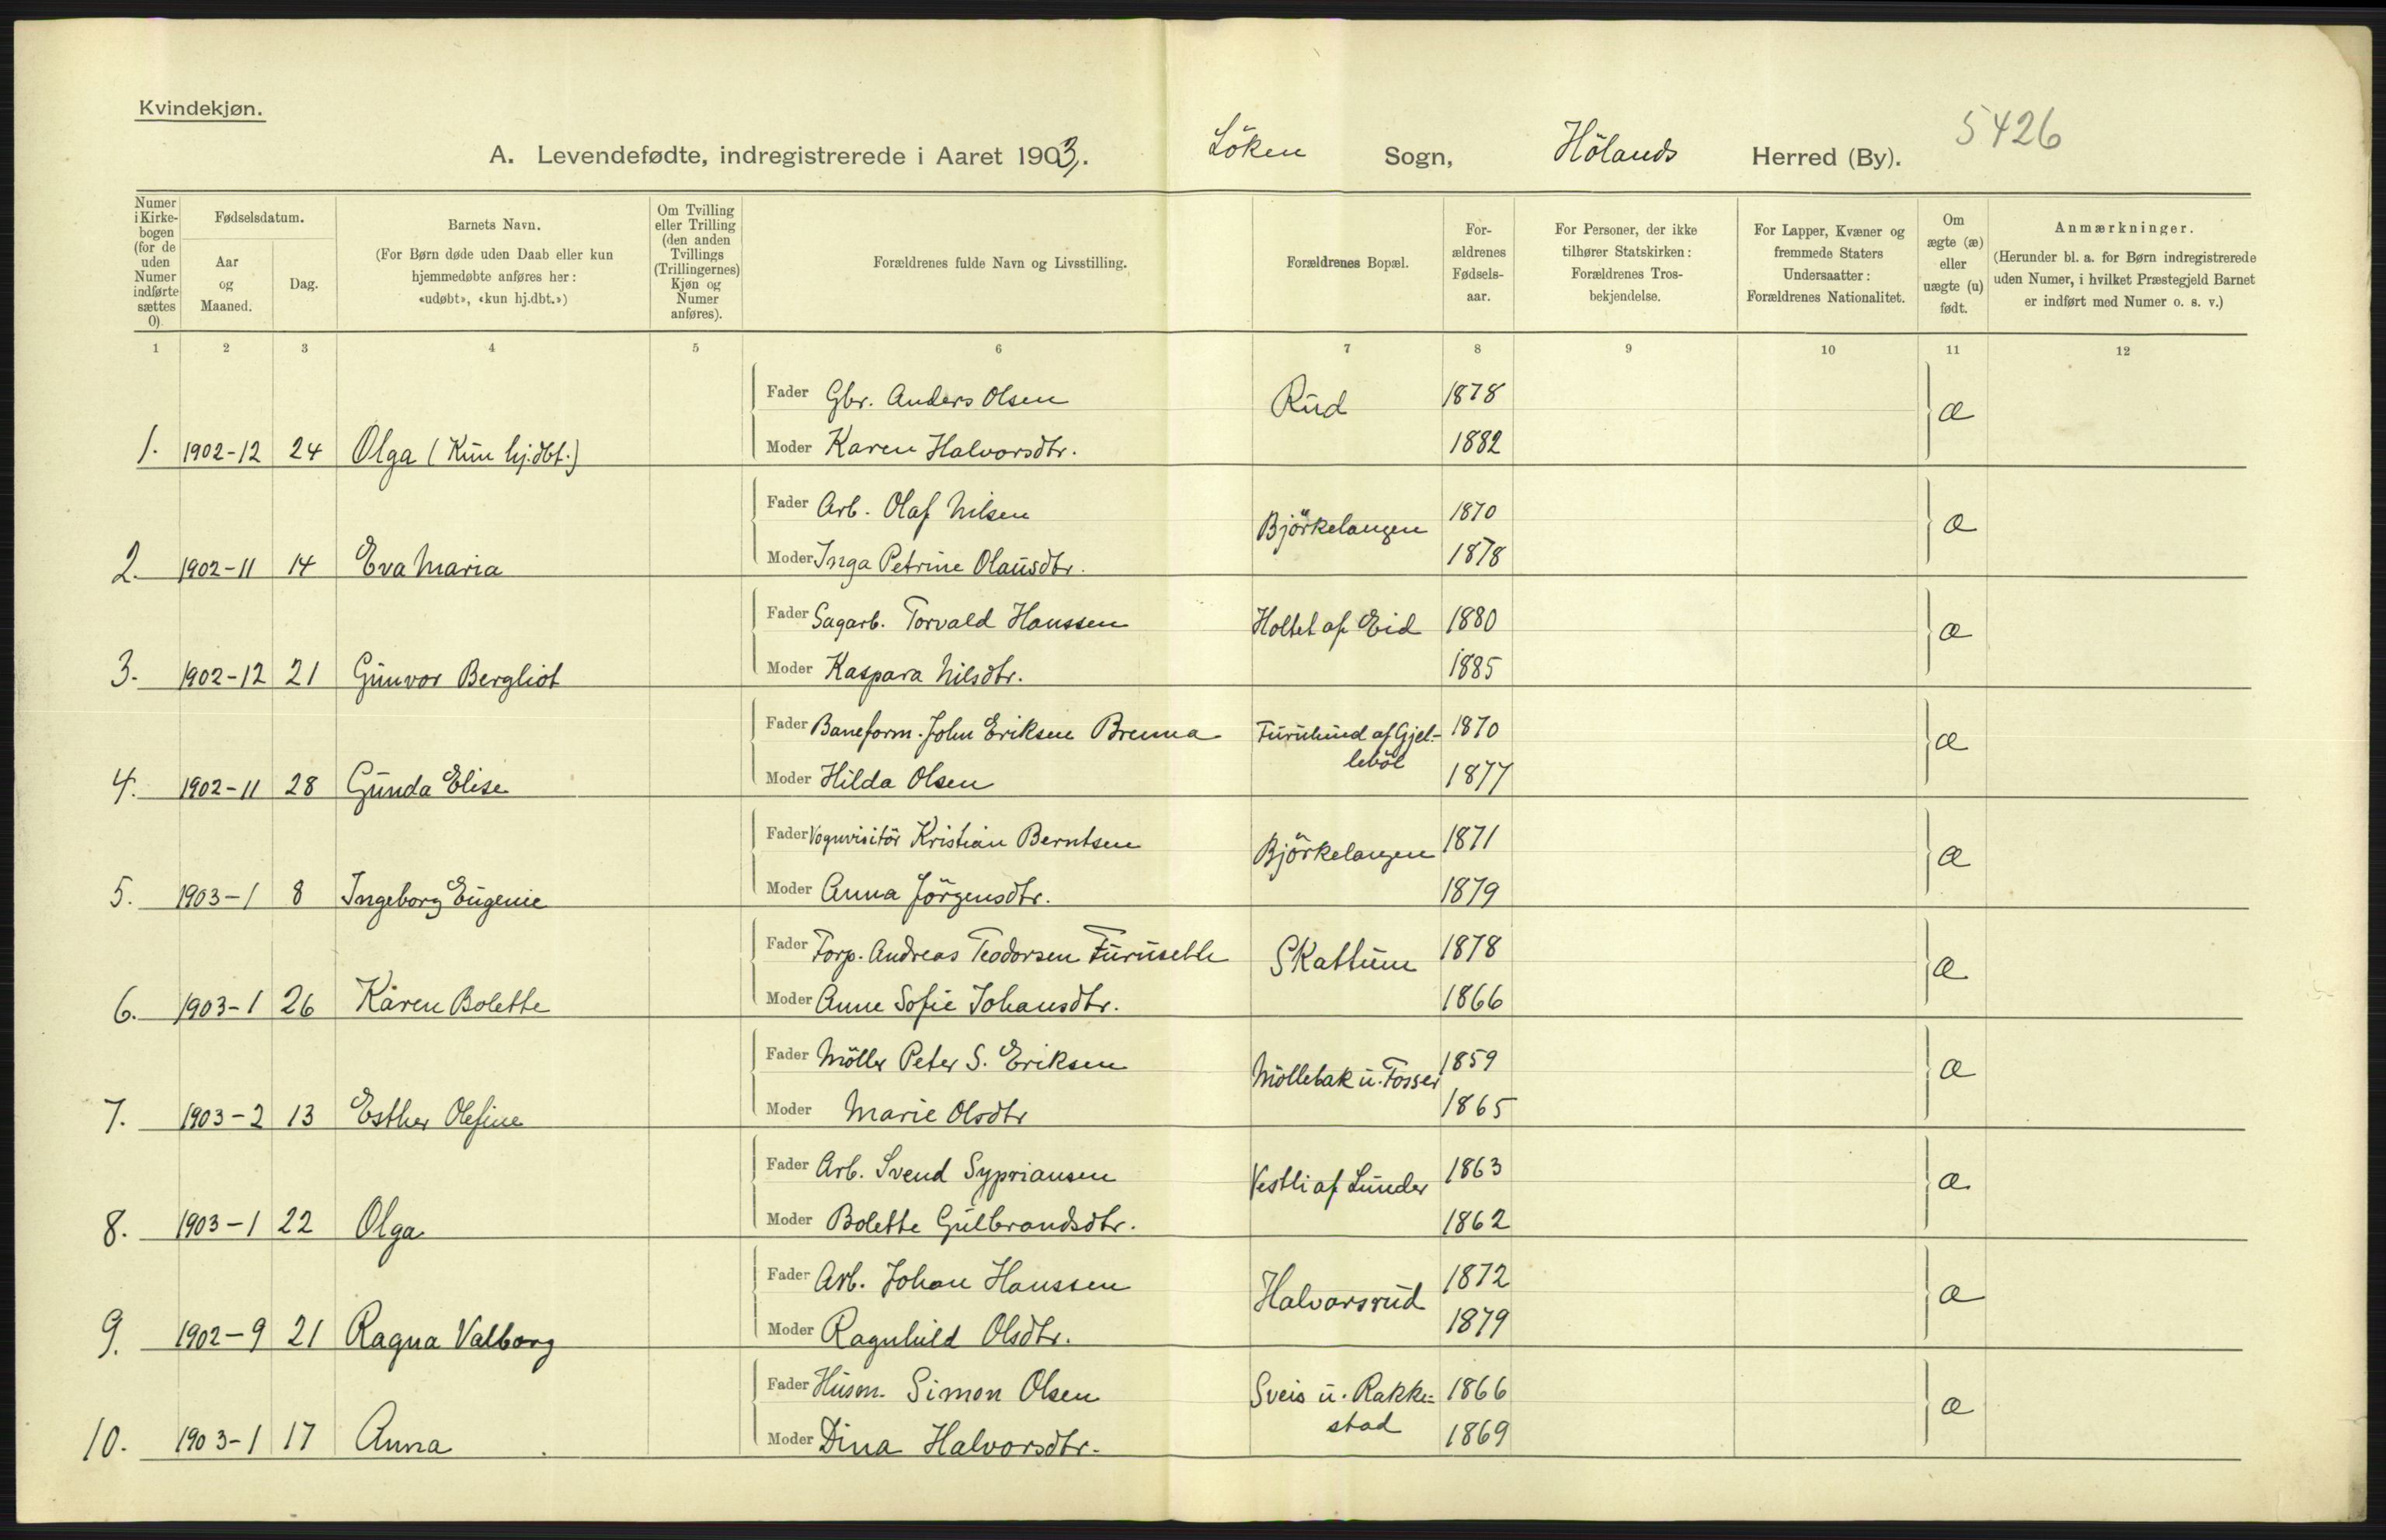 Kvindekjøn.
A. Levendefødte, indregistrerede i Aaret 1903. Löken Sogn, Hölands Herred (By). 5426
Numer i Kirkebogen (for de uden Numer indførte sættes 0).
Fødselsdatum.
Aar og Maaned.
Dag.
Barnets Navn.
(For Børn døde uden Daab eller kun hjemmedøbte anføres her: «udøbt», «kun hj.dbt.»)
Om Tvilling eller Trilling (den anden Tvillings (Trillingernes) Kjøn og Numer anføres).
Forældrenes fulde Navn og Livsstilling.
Forældrenes Bopæl.
Forældrenes Fødselsaar.
For Personer, der ikke tilhører Statskirken: Forældrenes Trosbekjendelse.
For Lapper, Kvæner og fremmede Staters Undersaatter: Forældrenes Nationalitet.
Om ægte (æ) eller uægte (u) født.
Anmærkninger.
(Herunder bl. a. for Børn indregistrerede uden Numer, i hvilket Præstegjeld Barnet er indført med Numer o. s. v.)
1 2 3 4 5 6 7 8 9 10 11 12
Fader Gbr. Anders Olsen Rud 1878 æ
1. 1902-12 24 Olga (Kun hj.dbt.) Moder Karen Halvorsdtr. 1882
Fader Arb. Olaf Nilsen Björkelangen 1870 æ
2. 1902-11 14 Eva Maria Moder Inga Petrine Olausdtr. 1878
Fader Sagarb. Torvald Hanssen Holtet af Eid 1880 æ
3. 1902-12 21 Gunvor Bergliot Moder Kaspara Nilsdtr. 1885
Fader Baneform. John Eriksen Brenna Furulund af Gjel- 1870 æ
leböl
4. 1902-11 28 Gunda Elise Moder Hilda Olsen 1877
Fader Vognvisitör Kristian Berntsen Björkelangen 1871 æ
5. 1903-1 8 Ingeborg Eugenie Moder Anna Jörgensdtr. 1879
Fader Torp. Andreas Teodorsen Furusette Skattum 1878 æ
6. 1903-1 26 Karen Bolette Moder Anne Sofie Johansdtr. 1866
Fader Möller Peter S. Eriksen Möllebak u. Fosser 1859 æ
7. 1903-2 13 Esther Olefine Moder Marie Olsdtr 1865
Fader Arb. Svend Sypriansen Vestli af Lunder 1863 æ
8. 1903-1 22 Olga Moder Bolette Gulbrandsdtr. 1862
Fader Arb. Johan Hanssen Halvorsrud 1872 æ
9. 1902-9 21 Ragna Valborg Moder Ragnhild Olsdtr. 1879
Fader Husm. Simon Olsen Sveis u. Rakke= 1866 æ
stad
10. 1903-1 17 Anna Moder Dina Halvorsdtr. 1869